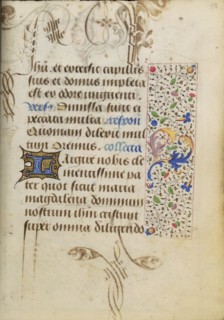 ihu et extersit capillis
suis et domus impleta
est ex odore unguenti.
vers. Dimissa sunt ei
peccata multa respon
Quoniam dilexit mul
tum Oremus. collecta
Largire nobis cle
mentissime pa
ter quod sicut maria
magdalena dominum
nostrum ihm cristum
super omnia diligendo